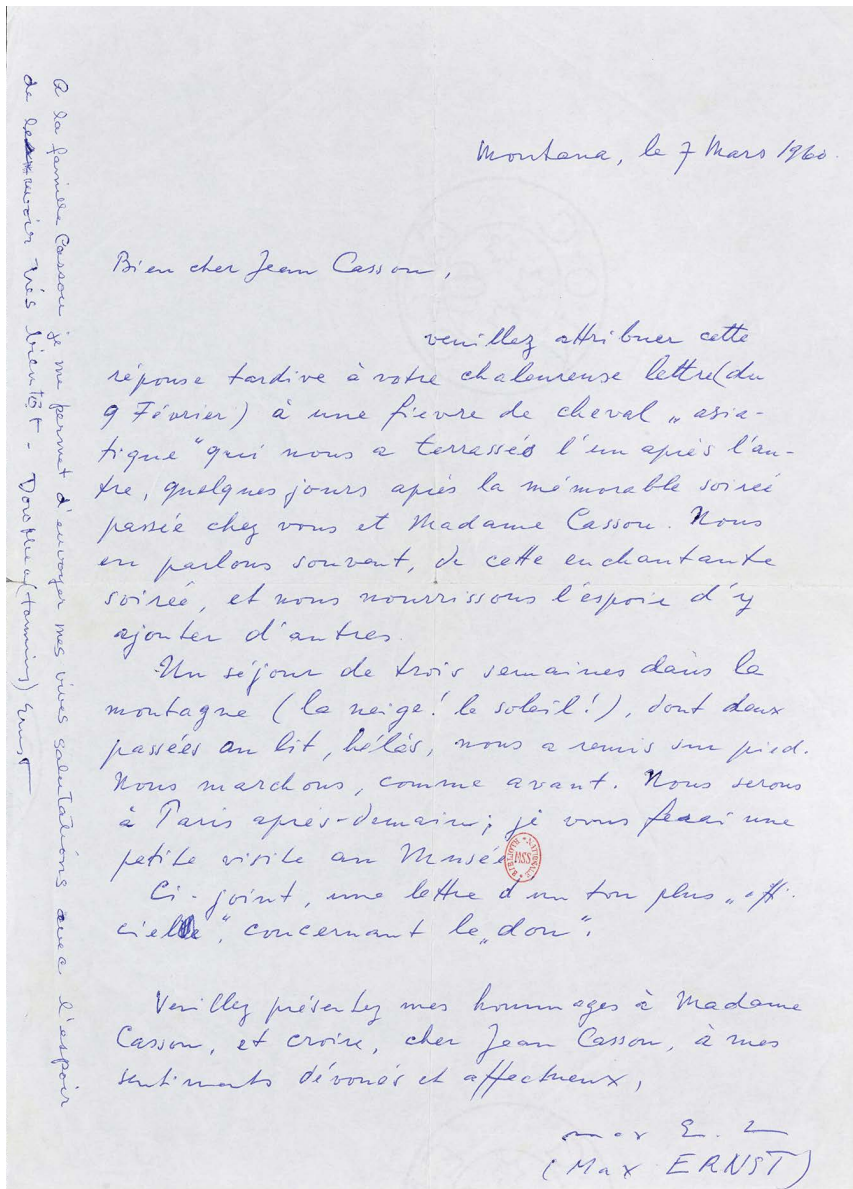 Montana, le 7 Mars 1960.
Bien cher Jean Cassou,
veuillez attribuer cette
réponse tardive à votre chaleureuse lettre (du
9 Février) à une fievre de cheval „asia-
tique" qui nous a terrassés l'un après l'au-
tre, quelques jours après la mémorable soirée
passée chez vous et Madame Cassou. Nous
en parlons souvent, de cette enchantante
soirée, et nous nourrissons l'espoir d'y
ajouter d'autres.
Un séjour de trois semaines dans la
montagne (la neige! le soleil!), dont deux
passées au lit, hélàs, nous a remis sur pied.
Nous marchons, comme avant. Nous serons
à Paris après-demain; je vous ferai une
petite visite au Musée
Ci-joint, une lettre d'un ton plus „offi-
cielle", concernant le „don".
Veuillez présentez mes hommages à Madame
Cassou, et croire, cher Jean Cassou, à mes
sentiments dévoués et affectueux,
max E
(Max ERNST)
A la famille Cassou je me permet d'envoyer mes vives salutations avec l'espoir
de revoir très bientôt - Dorothea (Tanning) Ernst
BIBLIOTHÈQUE NATIONALE MSS